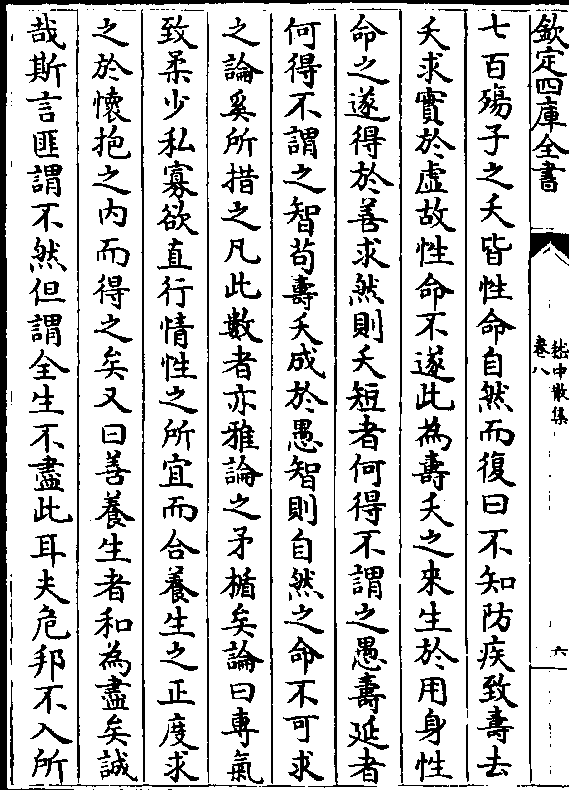 欽定四庫全書
嵇中散集
卷八
六
七百殤子之夭皆性命自然而復曰不知防疾致壽去
夭求實於虛故性命不遂此為壽夭之來生於用身性
命之遂得於善求然則夭短者何得不謂之愚壽延者
何得不謂之智苟壽夭成於愚智則自然之命不可求
之論奚所措之凡此數者亦雅論之矛楯矣論曰專氣
致柔少私寡欲直行情性之所宜而合養生之正度求
之於懷抱之內而得之矣又曰善養生者和為盡矣誠
哉斯言匪謂不然但謂全生不盡此耳夫危邦不入所